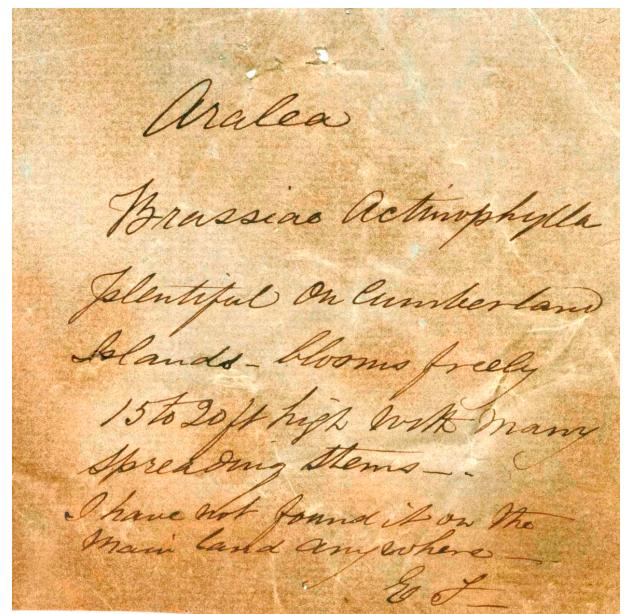 Aralea
Brassiae Actinophylla
plentiful On Cumberland
Islands - blooms freely
15 to 20 ft high with many
spreading stems -.
I have not found it on the
main land anywhere -
E T -